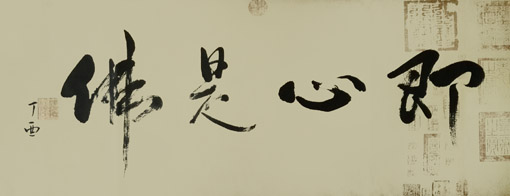 即心是佛
丁酉